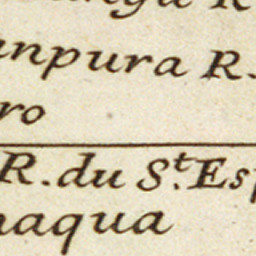 npura R.
ro
R. du S.t Esp
aqua